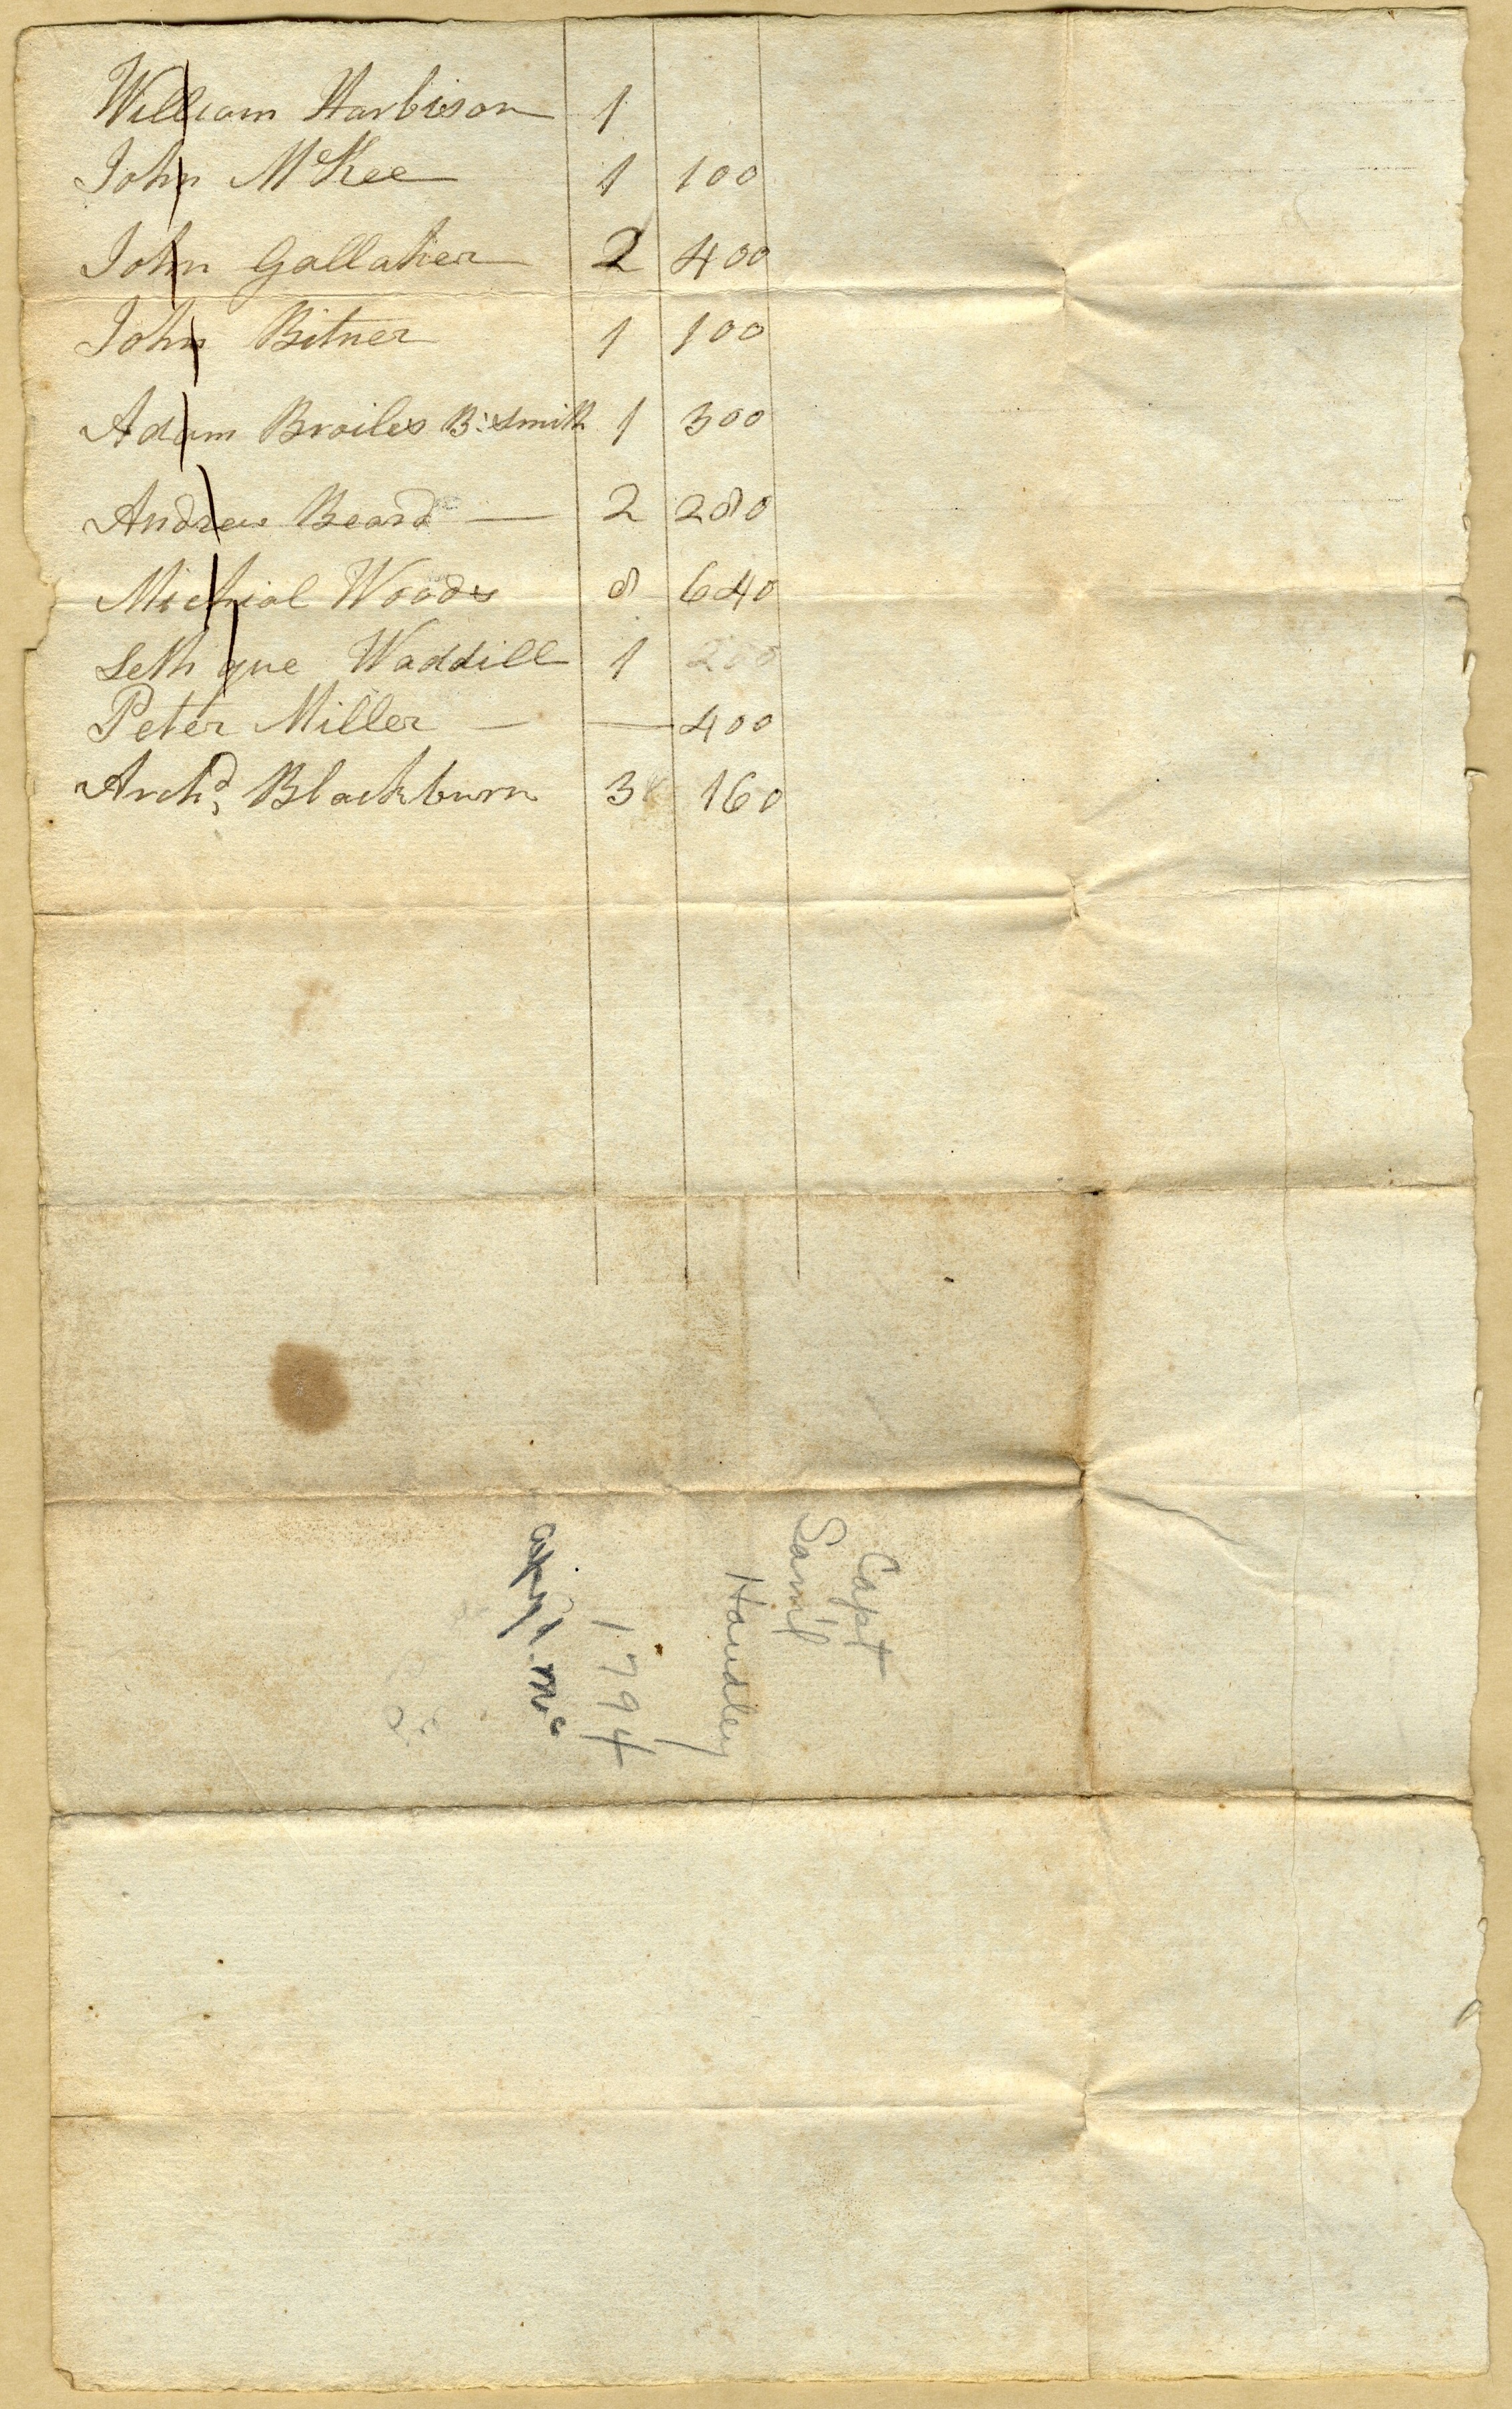 William Harbison 1
John McKee 1 100
John Gallaher 2 400
John Bitner 1 100
Adam Broiles B:Smith 1 300
Andrew Beard — 2 280
Michial Woods 8 640
Seth que Waddill 1 200
Peter Miller — — 400
Archd. Blackburn 3 160
Capt
Sam'l
Handley
1794